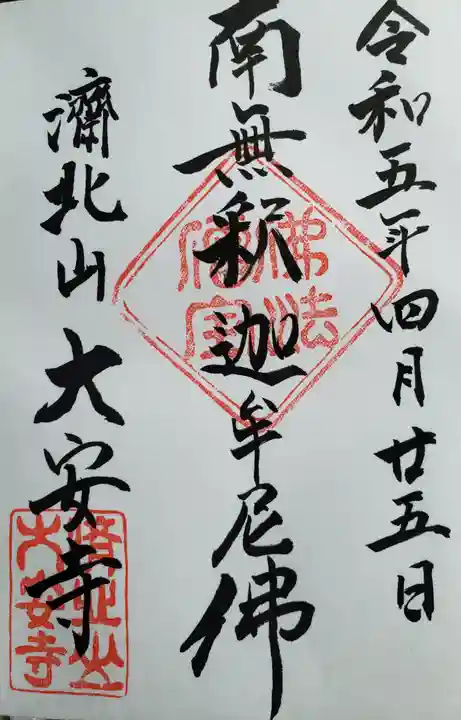 令和五年四月廿五日
南無釈迦牟尼佛
佛法僧寳
濟北山 大安寺
濟北山
大安寺